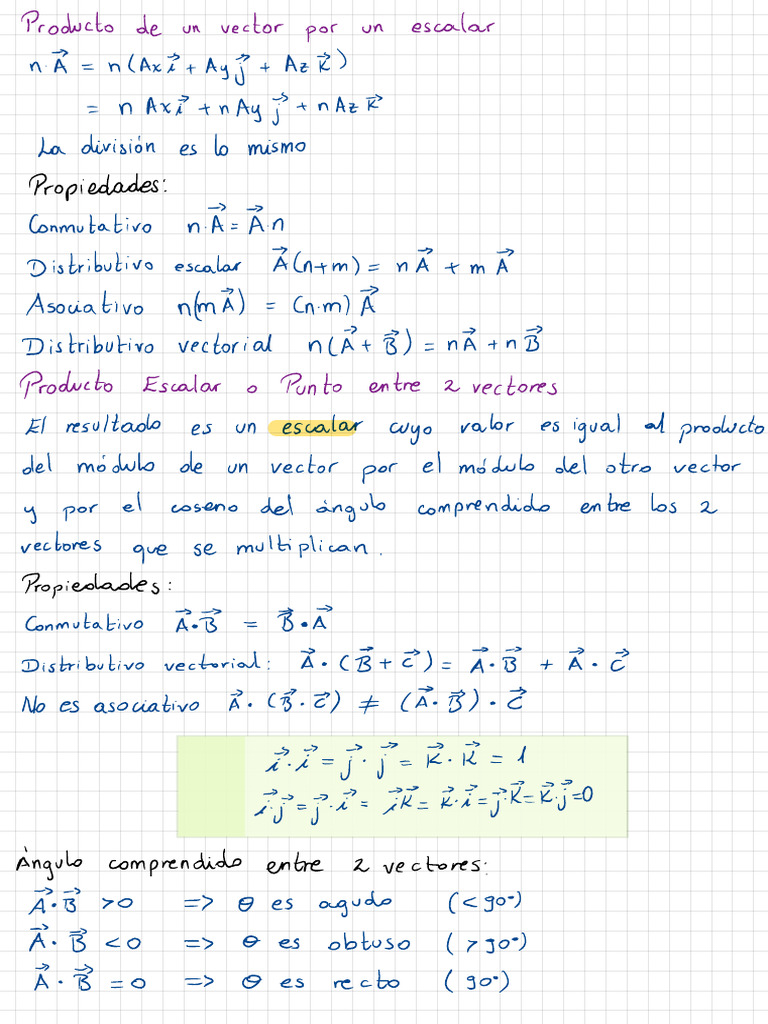 Producto de un vector por un escalar
n·A⃗ = n(Axi⃗ + Ayj⃗ + Azk⃗)
= nAxi⃗ + nAyj⃗ + nAzk⃗
La división es lo mismo
Propiedades:
Conmutativo n·A⃗ = A⃗·n
Distributivo escalar A⃗(n+m) = nA⃗ + mA⃗
Asociativo n(mA⃗) = (n·m)A⃗
Distributivo vectorial n(A⃗ + B⃗) = nA⃗ + nB⃗
Producto Escalar o Punto entre 2 vectores
El resultado es un escalar cuyo valor es igual al producto
del módulo de un vector por el módulo del otro vector
y por el coseno del ángulo comprendido entre los 2
vectores que se multiplican.
Propiedades:
Conmutativo A⃗·B⃗ = B⃗·A⃗
Distributivo vectorial: A⃗·(B⃗ + C⃗) = A⃗·B⃗ + A⃗·C⃗
No es asociativo A⃗·(B⃗·C⃗) ≠ (A⃗·B⃗)·C⃗
i⃗·i⃗ = j⃗·j⃗ = k⃗·k⃗ = 1
i⃗·j⃗ = j⃗·i⃗ = i⃗k⃗ = k⃗·i⃗ = j⃗·k⃗ = k⃗·j⃗ = 0
Ángulo comprendido entre 2 vectores:
A⃗·B⃗ >0 => θ es agudo (<90°)
A⃗·B⃗ <0 => θ es obtuso (>90°)
A⃗·B⃗ =0 => θ es recto (90°)